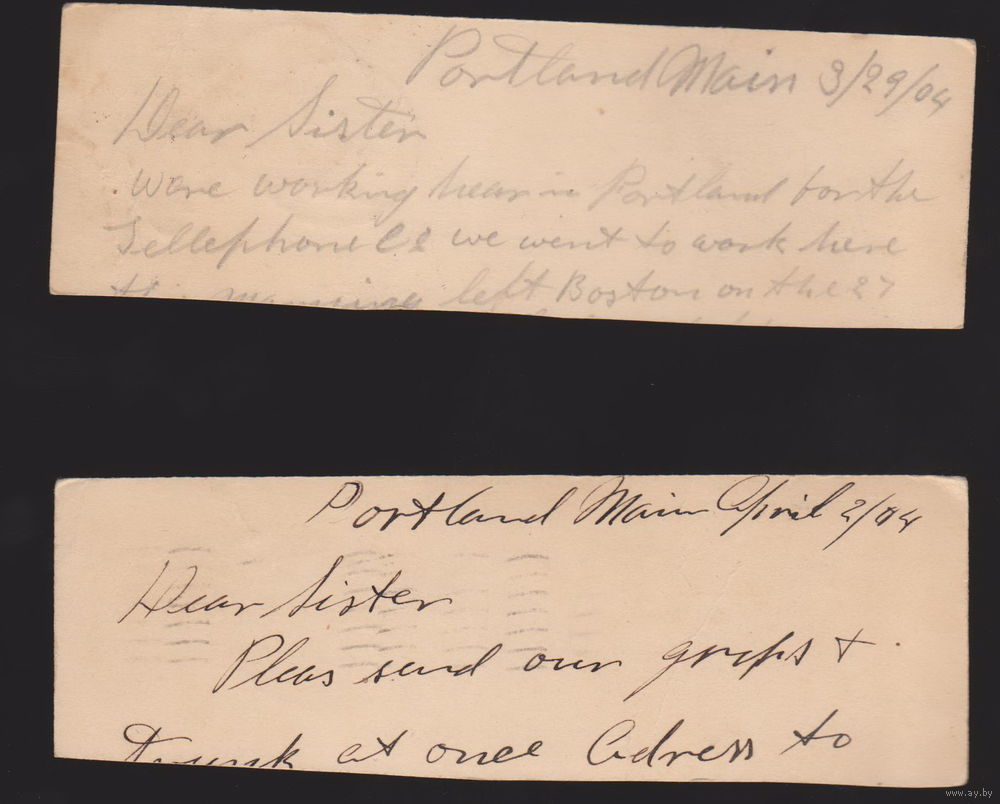 Portland Main 3/29/04
Dear Sister
Were working hear in Portland for the
Tellephone Co we went to work here
left Boston on the 27
Portland Main April 2/04
Dear Sister
Pleas send our grips &
Trunk at once Adress to
www.ay.by